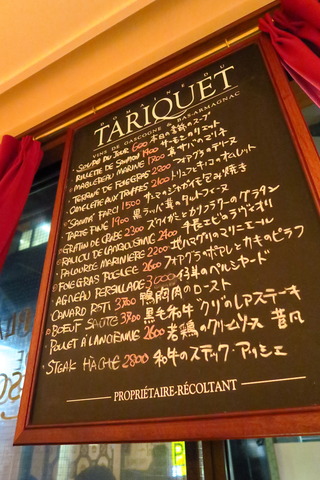 DOMAINE DU
TARIQUET
VINS DE GASCOGNE BAS-ARMAGNAC
SOUPE DU JOUR 600 本日の季節のスープ
RILLETTE DE SAUMON 1400 サーモンのリエット
MAQUEREAU MARINE 1700 真サバのマリネ
TERRINE DE FOIE GRAS フォアグラのテリーヌ
OMELETTE AUX TRUFFES 2100 トリュフとキノコのオムレツ
FARCI 1500 サンマの
TARTE FINE 1900
GRATIN DE CRABE 2300 ズワイガニとカリフラワーのグラタン
RAVIOLI DE LANGOUSTINE 2400 手長エビのラヴィオリ
PALOURDE MARINIERE 2200 地ハマグリのマリニエール
FOIE GRAS POELEE 2600 フォアグラのポワレとカキのピラフ
AGNEAU PERSILLADE 3000 仔羊のペルシヤード
CANARD ROTI 3700 鴨胸肉のロースト
BOEUF SAUTE 3800 黒毛和牛 のレアステーキ
POULET A L'ANCIENNE 2600 若鶏のクリームソース 昔風
STEAK HACHE 2800 和牛のステック・アッシェ
PROPRIÉTAIRE-RÉCOLTANT